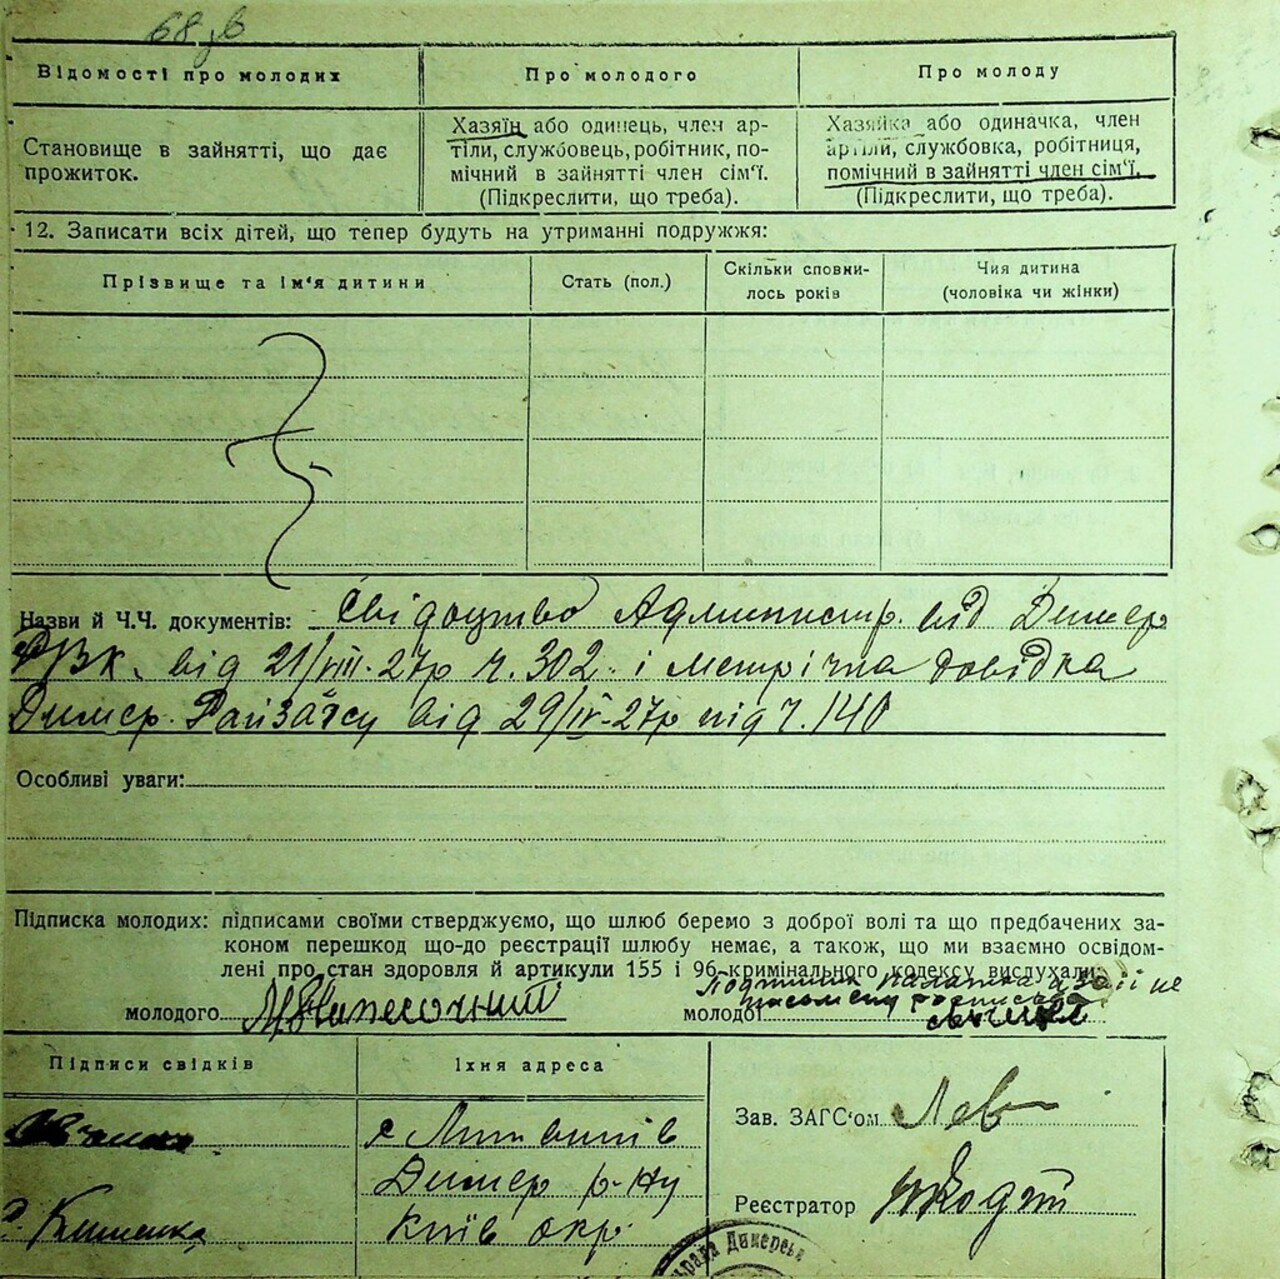 68 зв
Відомості про молодих
Про молодого
Про молоду
Становище в зайнятті, що дає
прожиток.
Хазяїн або одинець, член ар-
тіли, службовець, робітник, по-
мічний в зайнятті член сім'ї.
(Підкреслити, що треба).
Хазяйка або одиначка, член
артіли, службовка, робітниця,
помічний в зайнятті член сім'ї.
(Підкреслити, що треба).
12. Записати всіх дітей, що тепер будуть на утриманні подружжя:
Прізвище та ім'я дитини
Стать (пол.)
Скільки сповни-
лось років
Чия дитина
(чоловіка чи жінки)
Назви й Ч.Ч. документів: Свідоцтво Администр. від Димер
РВК. від 21/VIII-27р ч. 302 і метрічна довідка
Димер. Райзагсу від 29/IV-27р під ч. 140
Особливі уваги:
Підписка молодих: підписами своїми стверджуємо, що шлюб беремо з доброї волі та що предбачених за-
коном перешкод що-до реєстрації шлюбу немає, а також, що ми взаємно освідом-
лені про стан здоровля й артикули 155 і 96 кримінального кодексу вислухали:
молодого
молодої
Підписи свідків
Їхня адреса
с Литвинів
Димер р-ну
Київ окр.
Зав. ЗАГС'ом Лев
Реєстратор
Димерсь